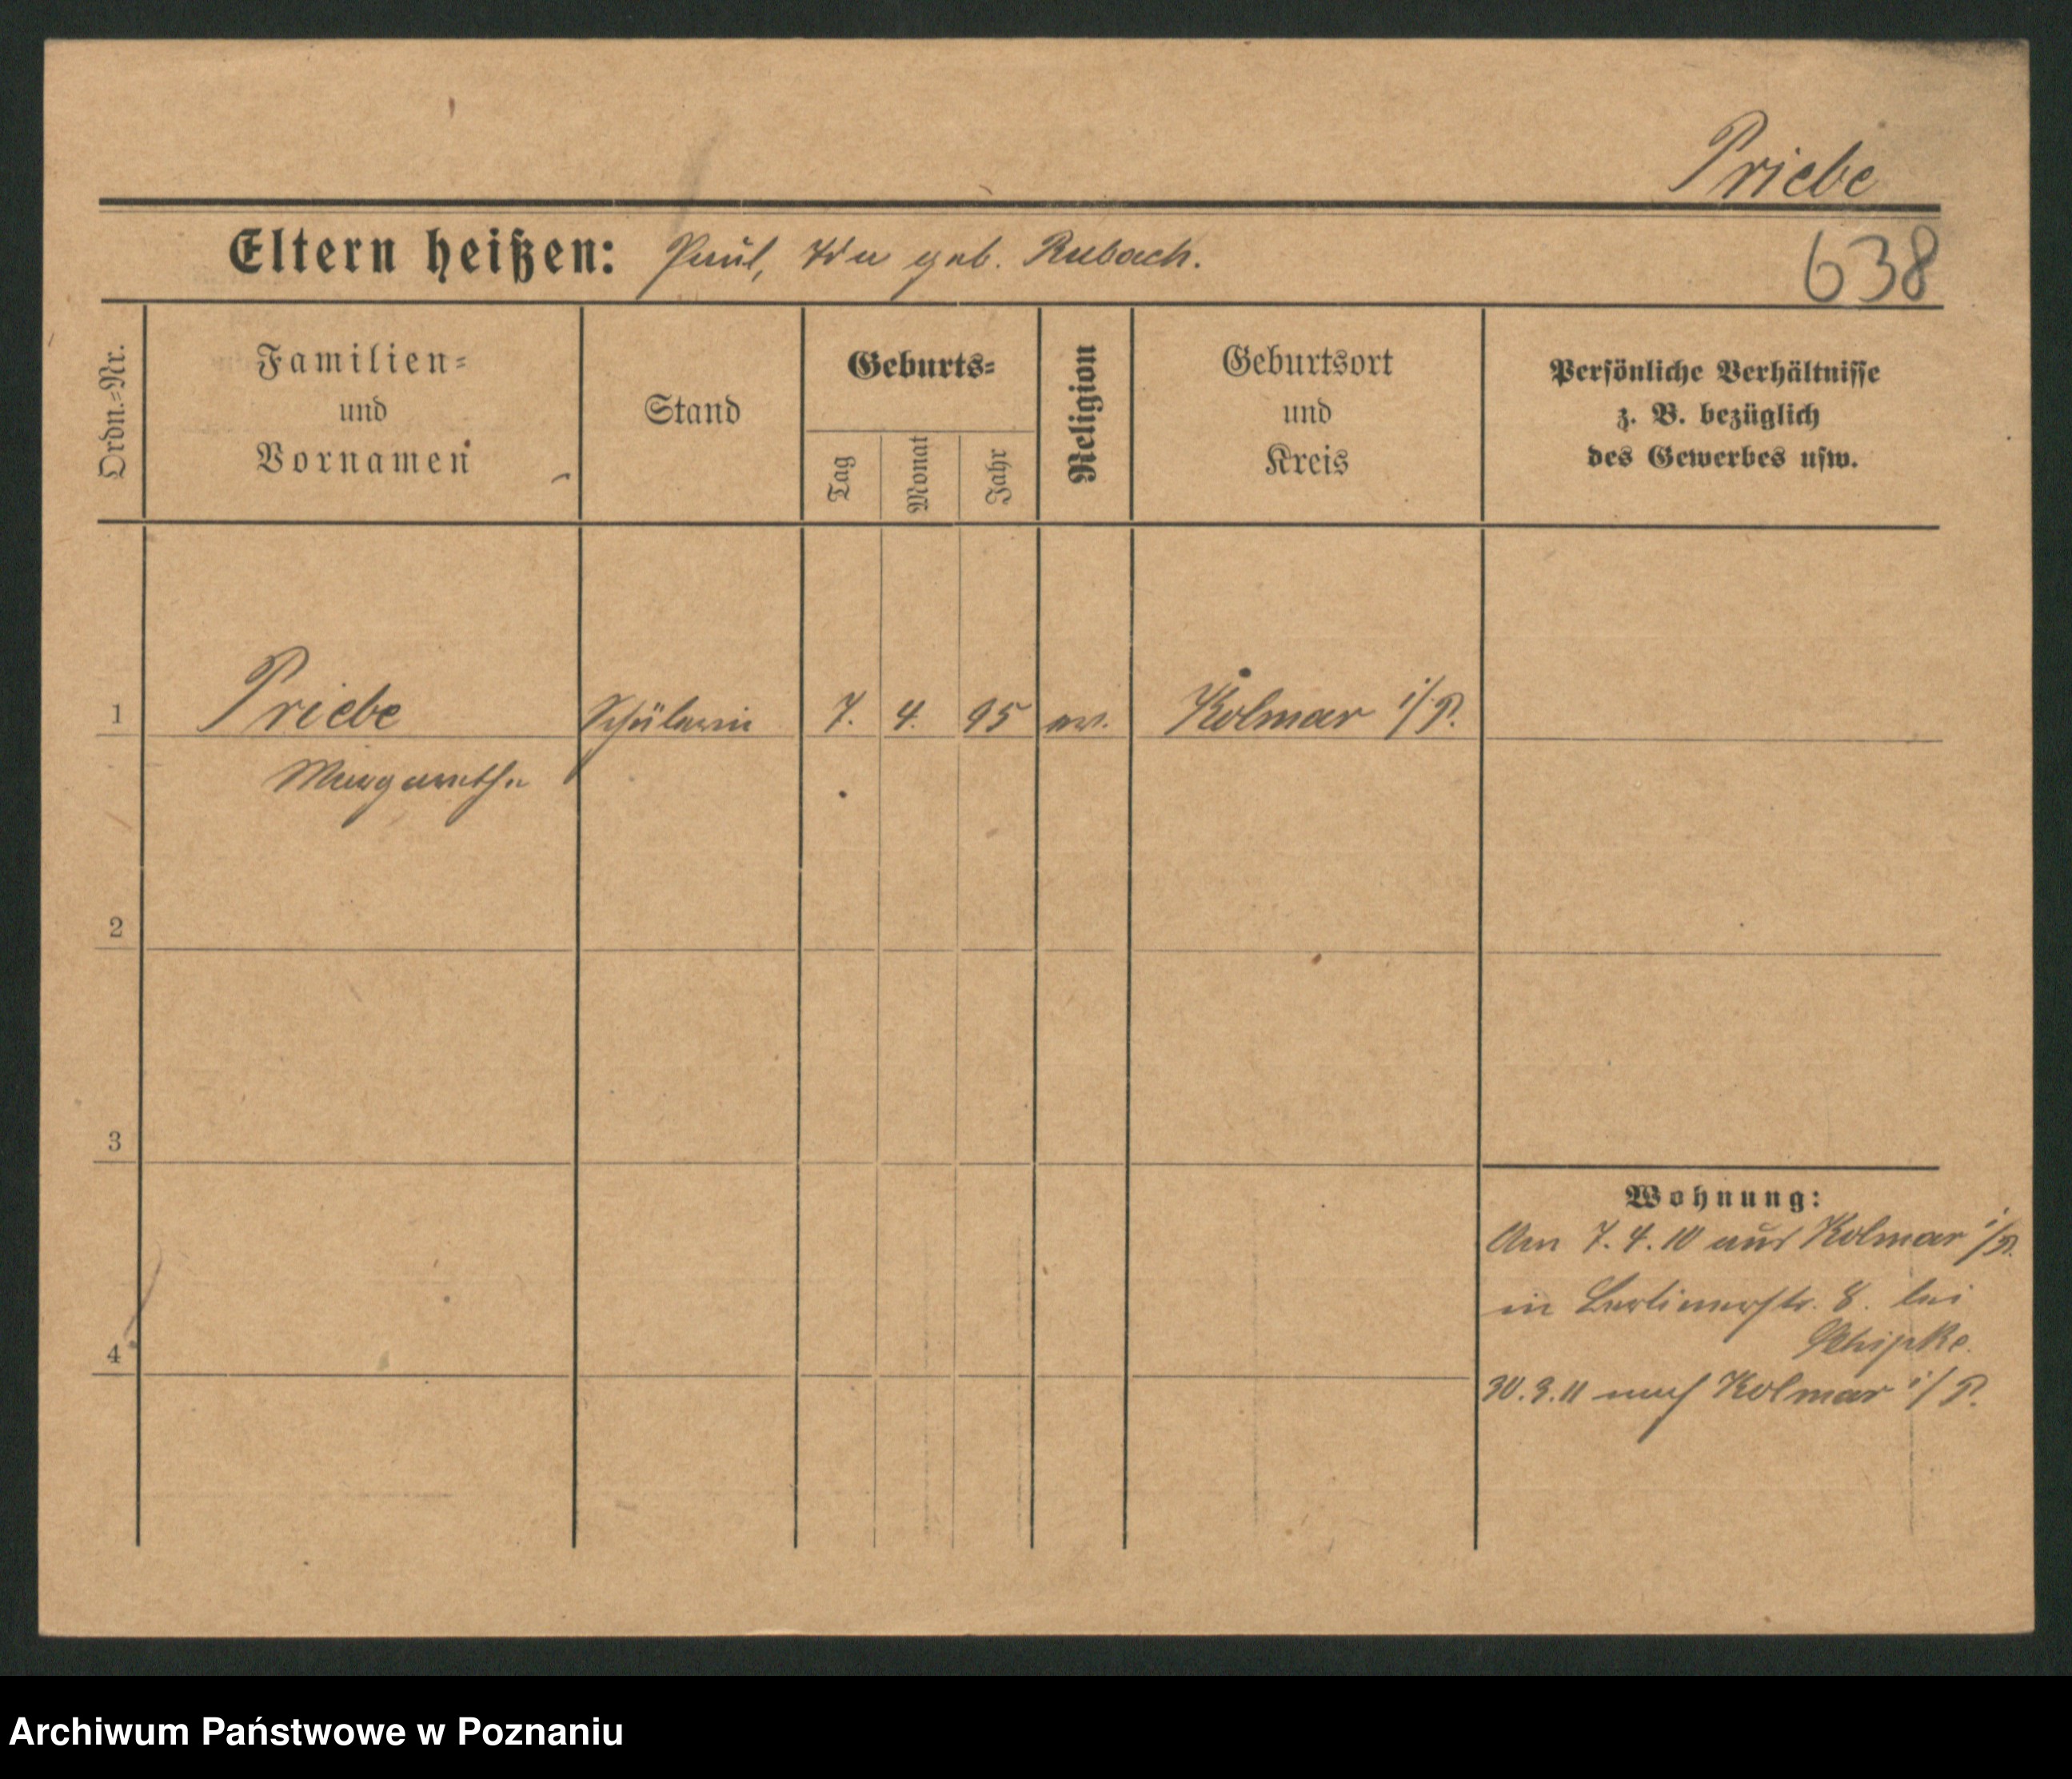 Priebe
Eltern heißen: Paul, Ida geb. Rubach.
638
Ordn.-Nr.
Familien-
und
Vornamen
Stand
Geburts-
Tag
Monat
Jahr
Religion
Geburtsort
und
Kreis
Persönliche Verhältnisse
z. B. bezüglich
des Gewerbes usw.
1 Priebe Schülerin 7. 4. 95 ev. Kolmar i/P.
Margarethe
2
3
4
Wohnung:
Am 7.4.10 aus Kolmar i/P.
in Berlinerstr. 8. bei
30.3.11 nach Kolmar i/P.
Archiwum Państwowe w Poznaniu